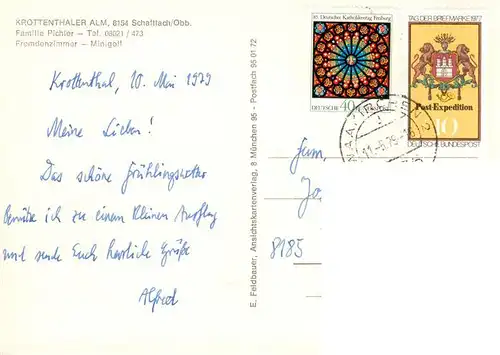 KROTTENTHALER ALM, 8154 Schaftlach/Obb.
Familie Pichler — Tel. 08021 / 473
Fremdenzimmer — Minigolf
Krottenthal, 10. Mai 1979
Meine Lieben!
Das schöne Frühlingswetter
benütze ich zu einem kleinen Ausflug
und sende Euch herzliche Grüße
Alfred
E. Feldbauer, Ansichtskartenverlag, 8 München 95 - Postfach 95 01 72
85. Deutscher Katholikentag Freiburg
DEUTSCHE
40
TAG DER BRIEFMARKE 1977
Post-Expedition
10
DEUTSCHE BUNDESPOST
11.-5.79-16
Fam.
Jo
8185